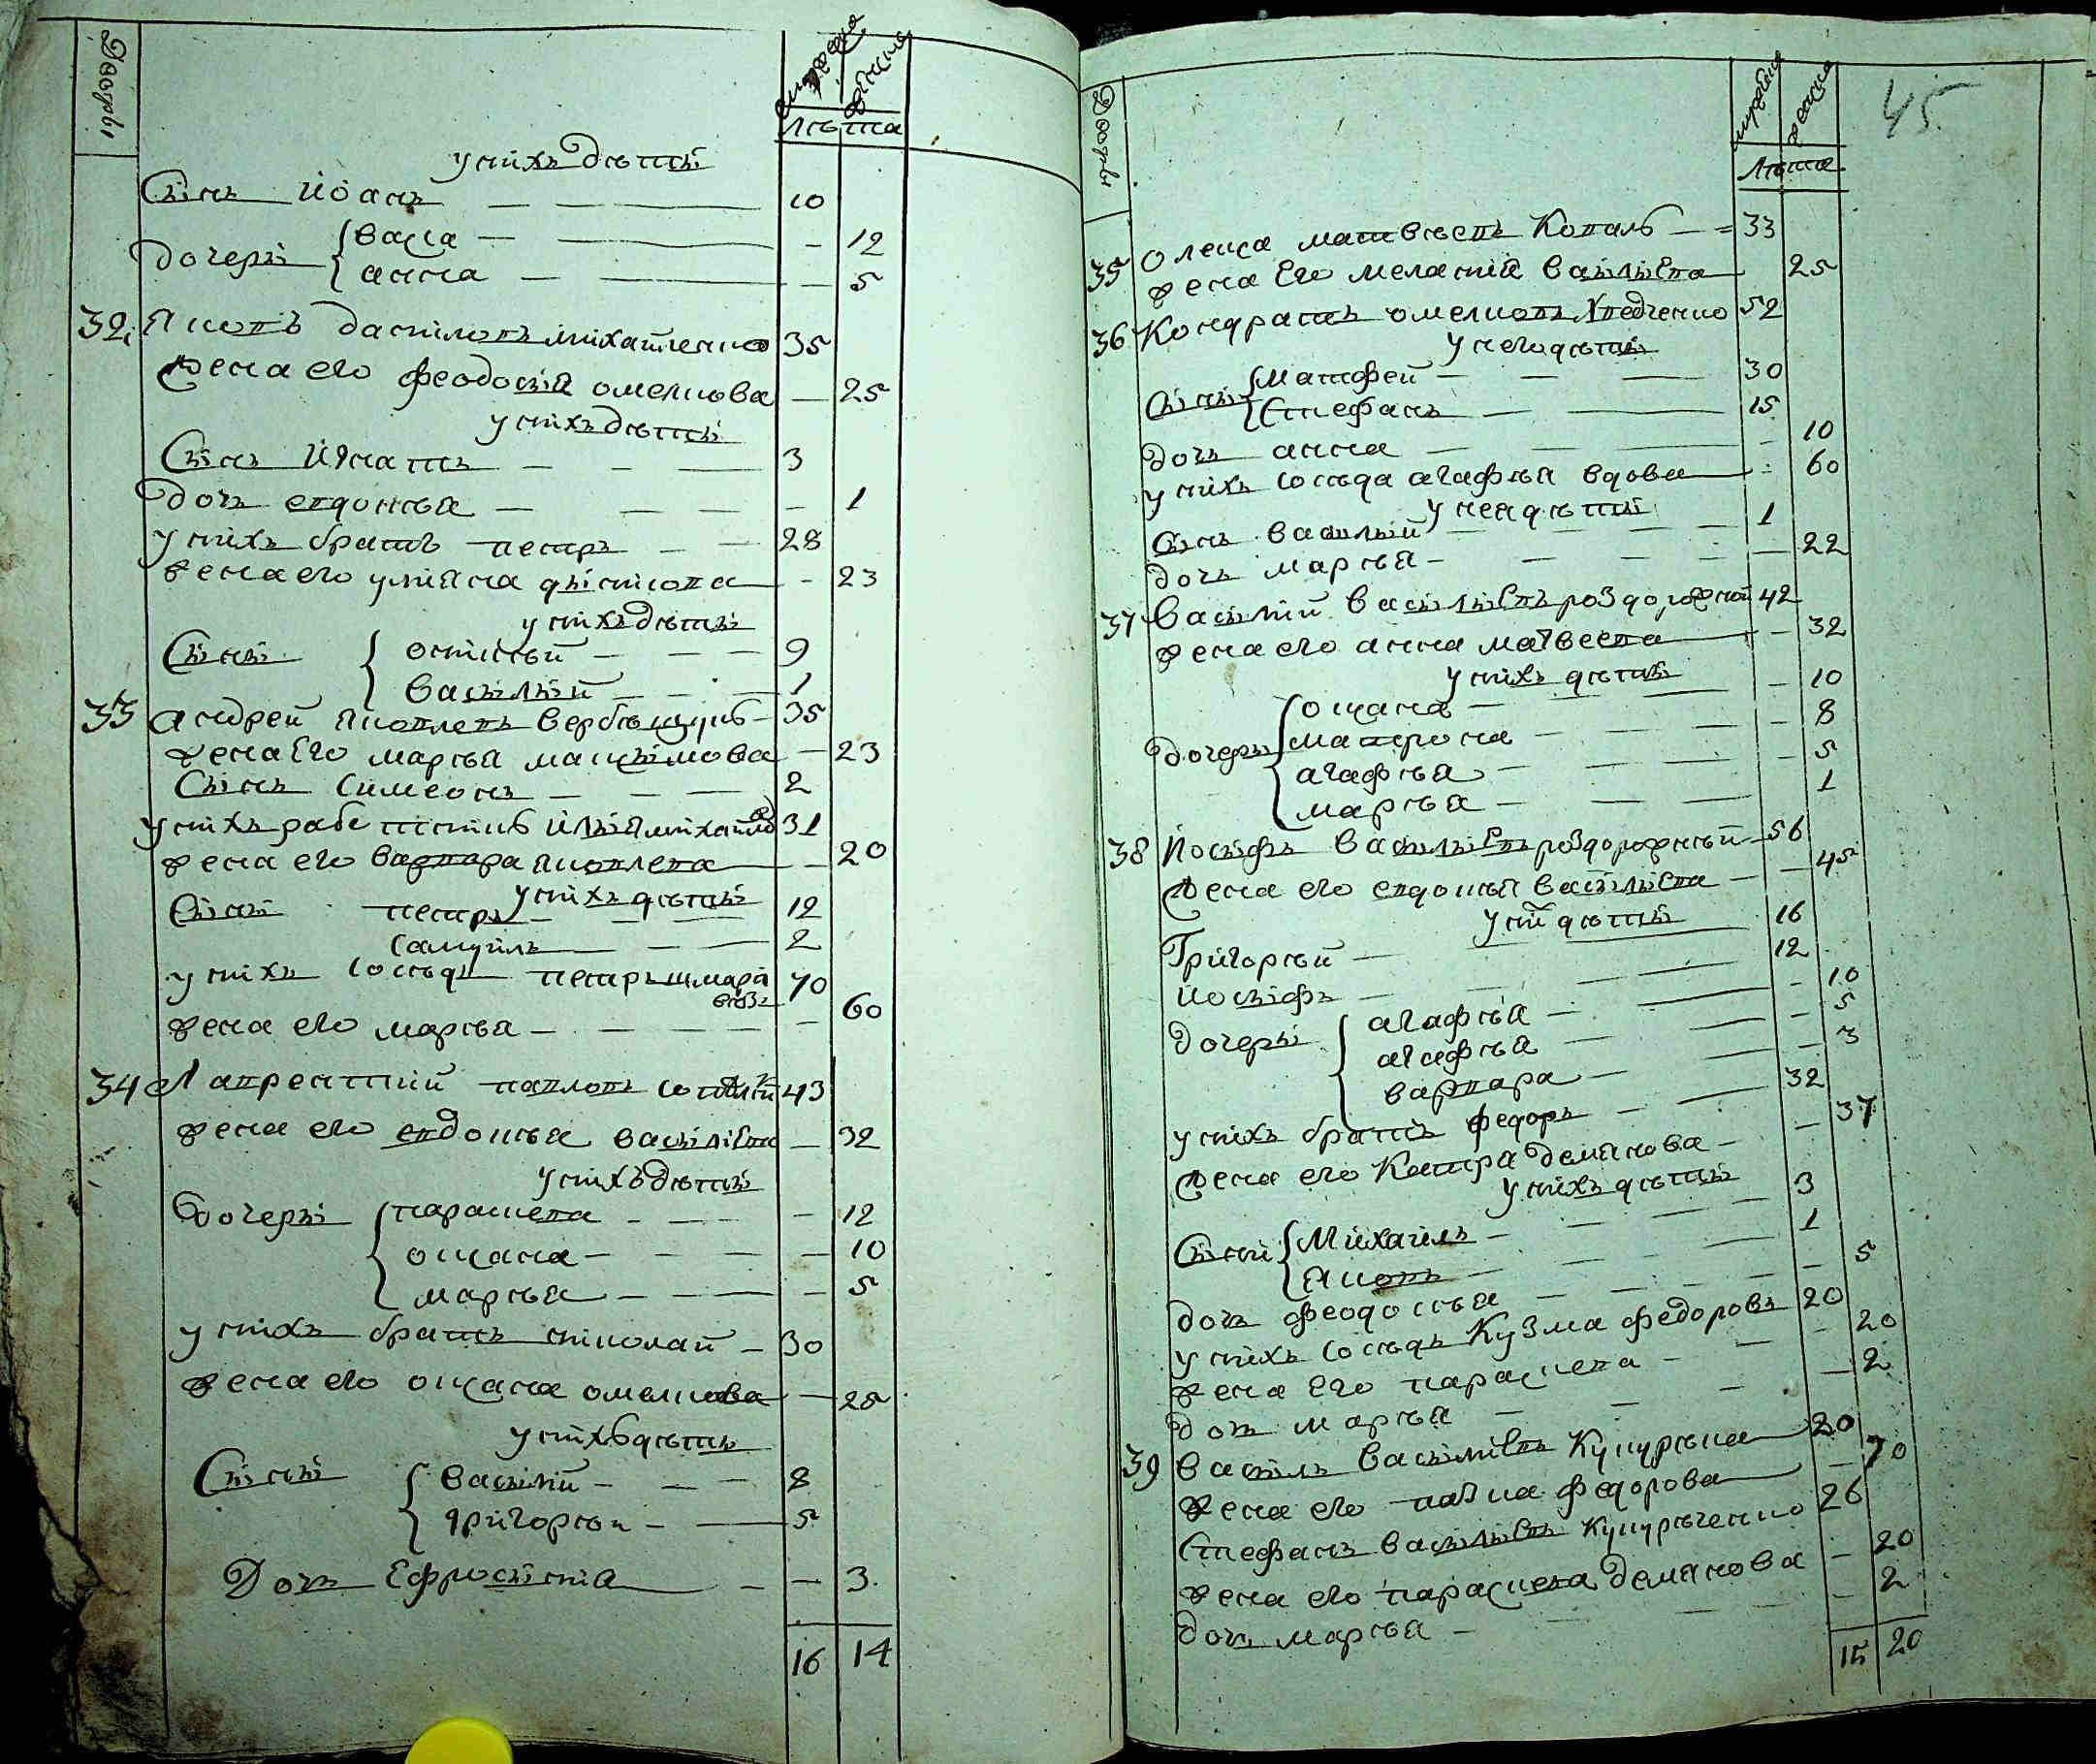 Дворы
мужеска
женска
Лѣта
у нихъ дѣти
Сынъ Иоанъ — 10
дочери васса — 12
анна — 5
32 Яковъ данїловъ михайленко 35
жена его феодосия омелкова — 25
у нихъ дѣти
Сынъ Игнатъ — 3
дочь евдокия — 1
у нихъ братъ петръ — 28
жена его улияна — 23
у нихъ дѣти
Сыны — 9
василий — 1
33 андрей яковлевъ 35
жена Его марѣя максимова — 23
Сынъ Симеонъ — 2
у нихъ работникъ илия михайлов 31
жена его варвара яковлева — 20
у нихъ дѣти
Сыны петръ — 12
самуилъ — 2
у нихъ сосѣдъ петръ 70
жена его марѣя — 60
34 Лаврентий павловъ 43
жена его евдокѣя василіева — 32
у нихъ дѣти
Дочери парасцева — 12
оксана — 10
марѣя — 5
у нихъ братъ николай — 30
жена его оксана омелкова — 25
у нихъ дѣти
Сыны василий — 8
григорѣи — 5
Дочь Ефросиния — 3
16 14
45
Дворы
мужеска
женска
Лѣта
35 Олекса матвѣевъ Коваль — 33
жена Его мелания василіева 25
36 Кондратъ омелковъ 52
у него дѣти
Сыны матфей — 30
Стефанъ — 15
дочь анна — 10
у нихъ сосѣда агафѣя вдова — 60
у нея дѣти
Сынъ василий — 1
дочь марѣя — 22
37 Василий василіевъ роздорожной 42
жена его анна матвеева — 32
у нихъ дѣти
дочери оксана — 10
матрона — 8
агафѣя — 5
марѣя — 1
38 Иосифъ василіевъ роздорожный 56
жена его евдокѣя василіева — 45
у ни дѣти
Григорѣй — 16
иосифъ — 12
дочери агафѣя — 10
агафѣя — 5
варвара — 3
у нихъ братъ федоръ — 32
жена его Катра демянова — 37
у нихъ дѣти
Сыни Михаилъ — 3
Яковъ — 1
дочь феодосѣя — 5
у нихъ сосѣдъ Кузма федоровъ 20
жена Его парасцева — 20
дочь марѣя — 2
39 василь василіевъ 80
жена его федорова — 70
Стефанъ василіевъ 26
жена его парасцева демянова — 20
дочь марѣя — 2
15 20